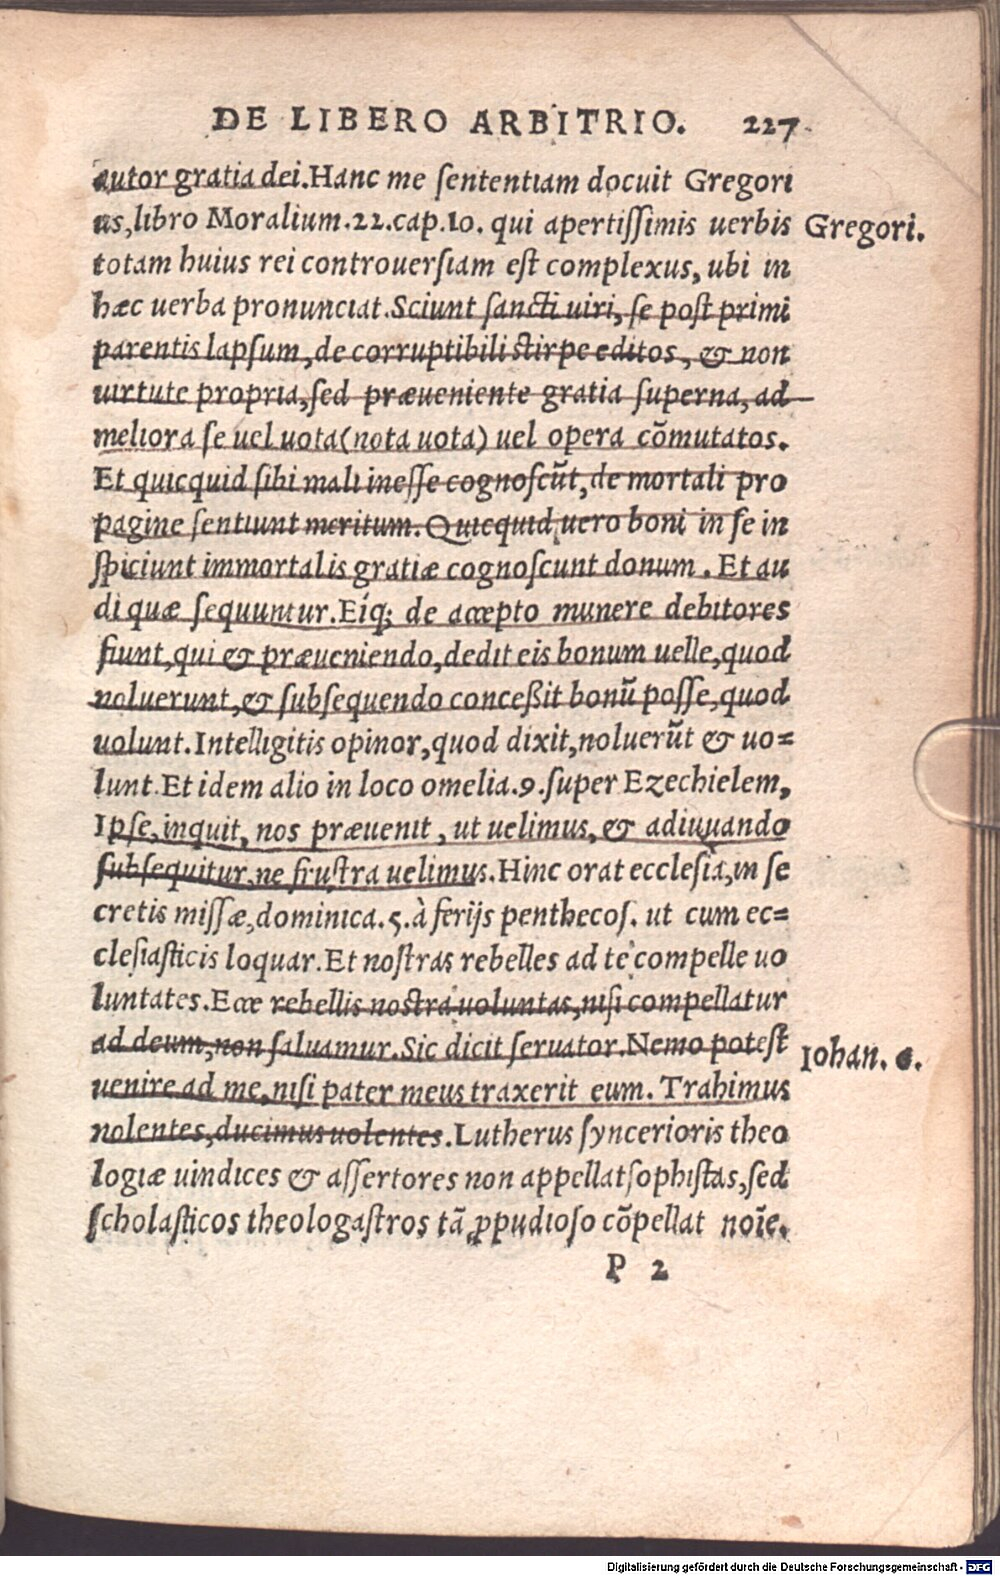 DE LIBERO ARBITRIO. 227
autor gratia dei.Hanc me ſententiam docuit Gregori
us,libro Moralium.22.cap.10. qui apertiſſimis uerbis Gregori.
totam huius rei controuerſiam eſt complexus, ubi in
hæc uerba pronunciat.Sciunt ſancti uiri, ſe poſt primi
parentis lapſum,de corruptibili ſtirpe editos, & non
uirtute propria,ſed præueniente gratia ſuperna, ad
meliora ſe uel uota(nota uota) uel opera cõmutatos.
Et quicquid ſibi mali ineſſe cognoſcũt,de mortali pro
pagine ſentiunt meritum. Quicquid uero boni in ſe in
ſpiciunt immortalis gratiæ cognoſcunt donum. Et au
di quæ ſequuntur.Eíq; de accepto munere debitores
fiunt,qui & præueniendo,dedit eis bonum uelle,quod
noluerunt,& ſubſequendo conceßit bonũ poſſe,quod
uolunt.Intelligitis opinor,quod dixit,noluerũt & uo=
lunt.Et idem alio in loco omelia.9.ſuper Ezechielem,
Ipſe,inquit, nos præuenit, ut uelimus, & adiuuando
ſubſequitur,ne fruſtra uelimus.Hinc orat eccleſia,in ſe
cretis miſſæ,dominica.5.à ferijs penthecoſ. ut cum ec=
cleſiaſticis loquar.Et noſtras rebelles ad te compelle uo
luntates.Ecce rebellis noſtra uoluntas,niſi compellatur
ad deum,non ſaluamur.Sic dicit ſeruator.Nemo poteſt Iohan. 6.
uenire ad me,niſi pater meus traxerit eum. Trahimus
nolentes,ducimus uolentes.Lutherus ſyncerioris theo
logiæ uindices & aſſertores non appellat ſophiſtas,ſed
ſcholaſticos theologaſtros tã ꝓpudioſo cõpellat noĩe.
P 2
Digitalisierung gefördert durch die Deutsche Forschungsgemeinschaft - DFG